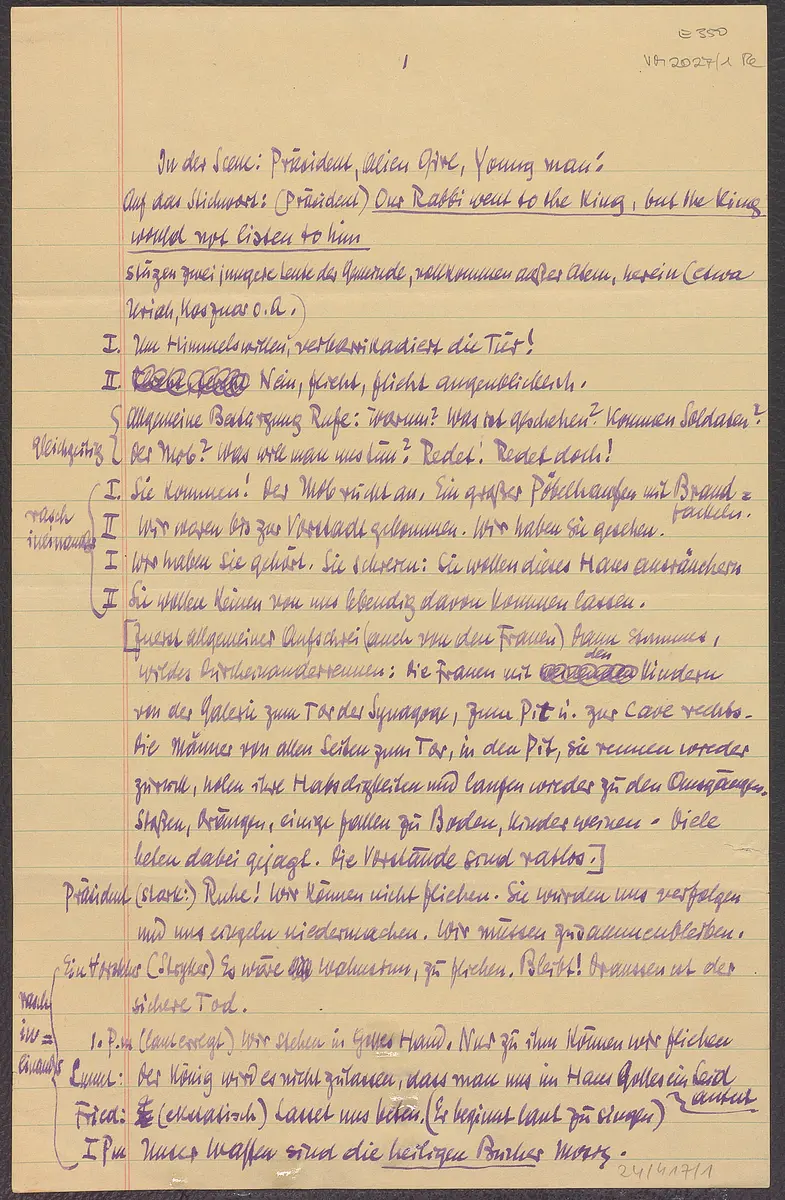 E 350
1
VM 2027/1 Re
In der Scene: Präsident, Alien Girl, Young man:
Auf das Stichwort: (Präsident) Our Rabbi went to the King, but the King
would not listen to him
stürzen zwei jüngere Leute der Gemeinde, vollkommen außer Atem, herein (etwa
Urich, o. A.)
I. Um Himmelswillen, verbarrikadiert die Tür!
II Nein, flieht, flieht augenblicklich.
Allgemeine Bestürzung Rufe: Warum? Was ist geschehen? Kommen Soldaten?
gleichzeitig
Der Mob? Was will man uns tun? Redet! Redet doch!
I. Sie kommen! Der Mob rückt an. Ein großer Pöbelhaufen mit Brand=
fackeln.
rasch
ineinander
II Wir waren bis zur Vorstadt gekommen. Wir haben Sie gesehen.
I Wir haben Sie gehört. Sie schreien: Sie wollen dieses Haus ausräuchern
II Sie wollen Keinen von uns lebendig davon kommen lassen.
[Zuerst allgemeiner Aufschrei (auch von den Frauen) Dann stummes,
wildes Durcheinanderrennen: Die Frauen mit den Kindern
von der Galerie zum Tor der Synagoge, zum Pit u. zur Cave rechts.
Die Männer von allen Seiten zum Tor, in den Pit, sie rennen wieder
zurück, holen ihre Habseligkeiten und laufen wieder zu den Ausgängen.
Stoßen, Drängen, einige fallen zu Boden, Kinder weinen. Viele
beten dabei gejagt. Die Vorstände sind ratlos.]
Präsident (stark:) Ruhe! Wir können nicht fliehen. Sie würden uns verfolgen
und uns einzeln niedermachen. Wir müssen zusammenbleiben.
Ein Vorsteher (Stryker) Es wäre Wahnsinn, zu fliehen. Bleibt! Draussen ist der
sichere Tod.
rasch
in=
einander
1. P.m (laut erregt) Wir stehen in Gottes Hand. Nur zu ihm können wir fliehen
Der König wird es nicht zulassen, dass man uns im Haus Gottes ein Leid
antut
Fried: (ekstatisch) Lasset uns beten. (Er beginnt laut zu singen)
I Pm Unser Waffen sind die heiligen Bücher
24/417/1